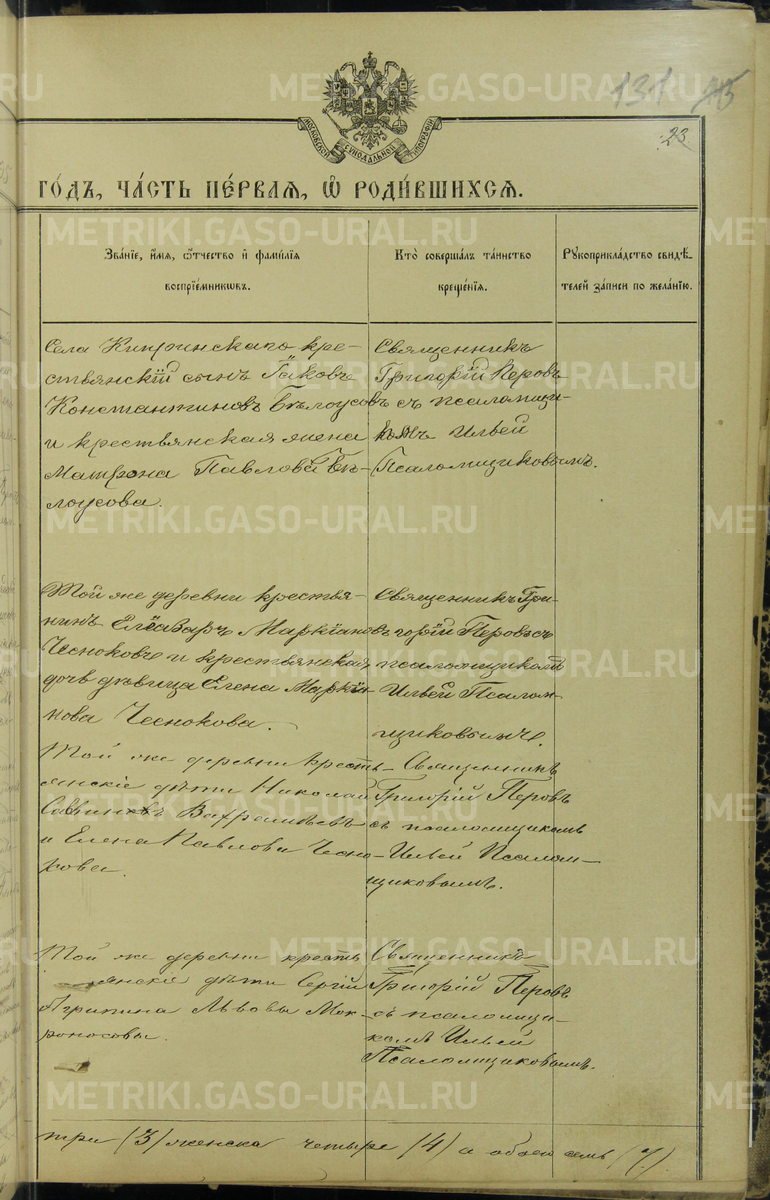 131 23
23
МОСКОВСКОЙ СѴНОДАЛЬНОЙ ТИПОГРАФІИ
ГО́ДЪ, ЧА́СТЬ ПЕ́РВАЯ, Ѡ҆ РОДИ́ВШИХСЯ.
Зва́нїе, и҆́мя, ѻ҆́тчество и҆ фами́лїя
воспрїе́мниковъ.
Кто̀ соверша́лъ та́инство
креще́нїя.
Рꙋкоприкла́дство свидѣ́-
телей за́писи по жела́нїю.
Села Кипринскаго кре-
стьянскій сынъ Іаковъ
Константиновъ Бѣлоусовъ
и крестьянская жена
Матрона Павлова Бѣ-
лоусова.
Священникъ
Григорій Перовъ
съ псаломщи-
комъ Ильей
Псаломщиковымъ.
Той же деревни крестья-
нинъ Елеазаръ Маркіановъ
Чесноковъ и крестьянская
дочь дѣвица Елена Маркіа-
нова Чеснокова.
Священникъ Гри-
горій Перовъ съ
псаломщикомъ
Ильей Псалом-
щиковымъ.
Той же деревни кресть-
янскіе дѣти Николай
Саввинъ Вахрамѣевъ
и Елена Павлова Чесно-
кова.
Священникъ
Григорій Перовъ
съ псаломщикомъ
Ильей Псалом-
щиковымъ.
Той же деревни кресть
янскіе дѣти Сергій
Агрипина Львовы Мок-
роносовы.
Священникъ
Григорій Перовъ
съ псаломщи-
комъ Ильей
Псаломщиковымъ.
три (3) женска четыре (4) а обоего семь (7).
METRIKI.GASO-URAL.RU